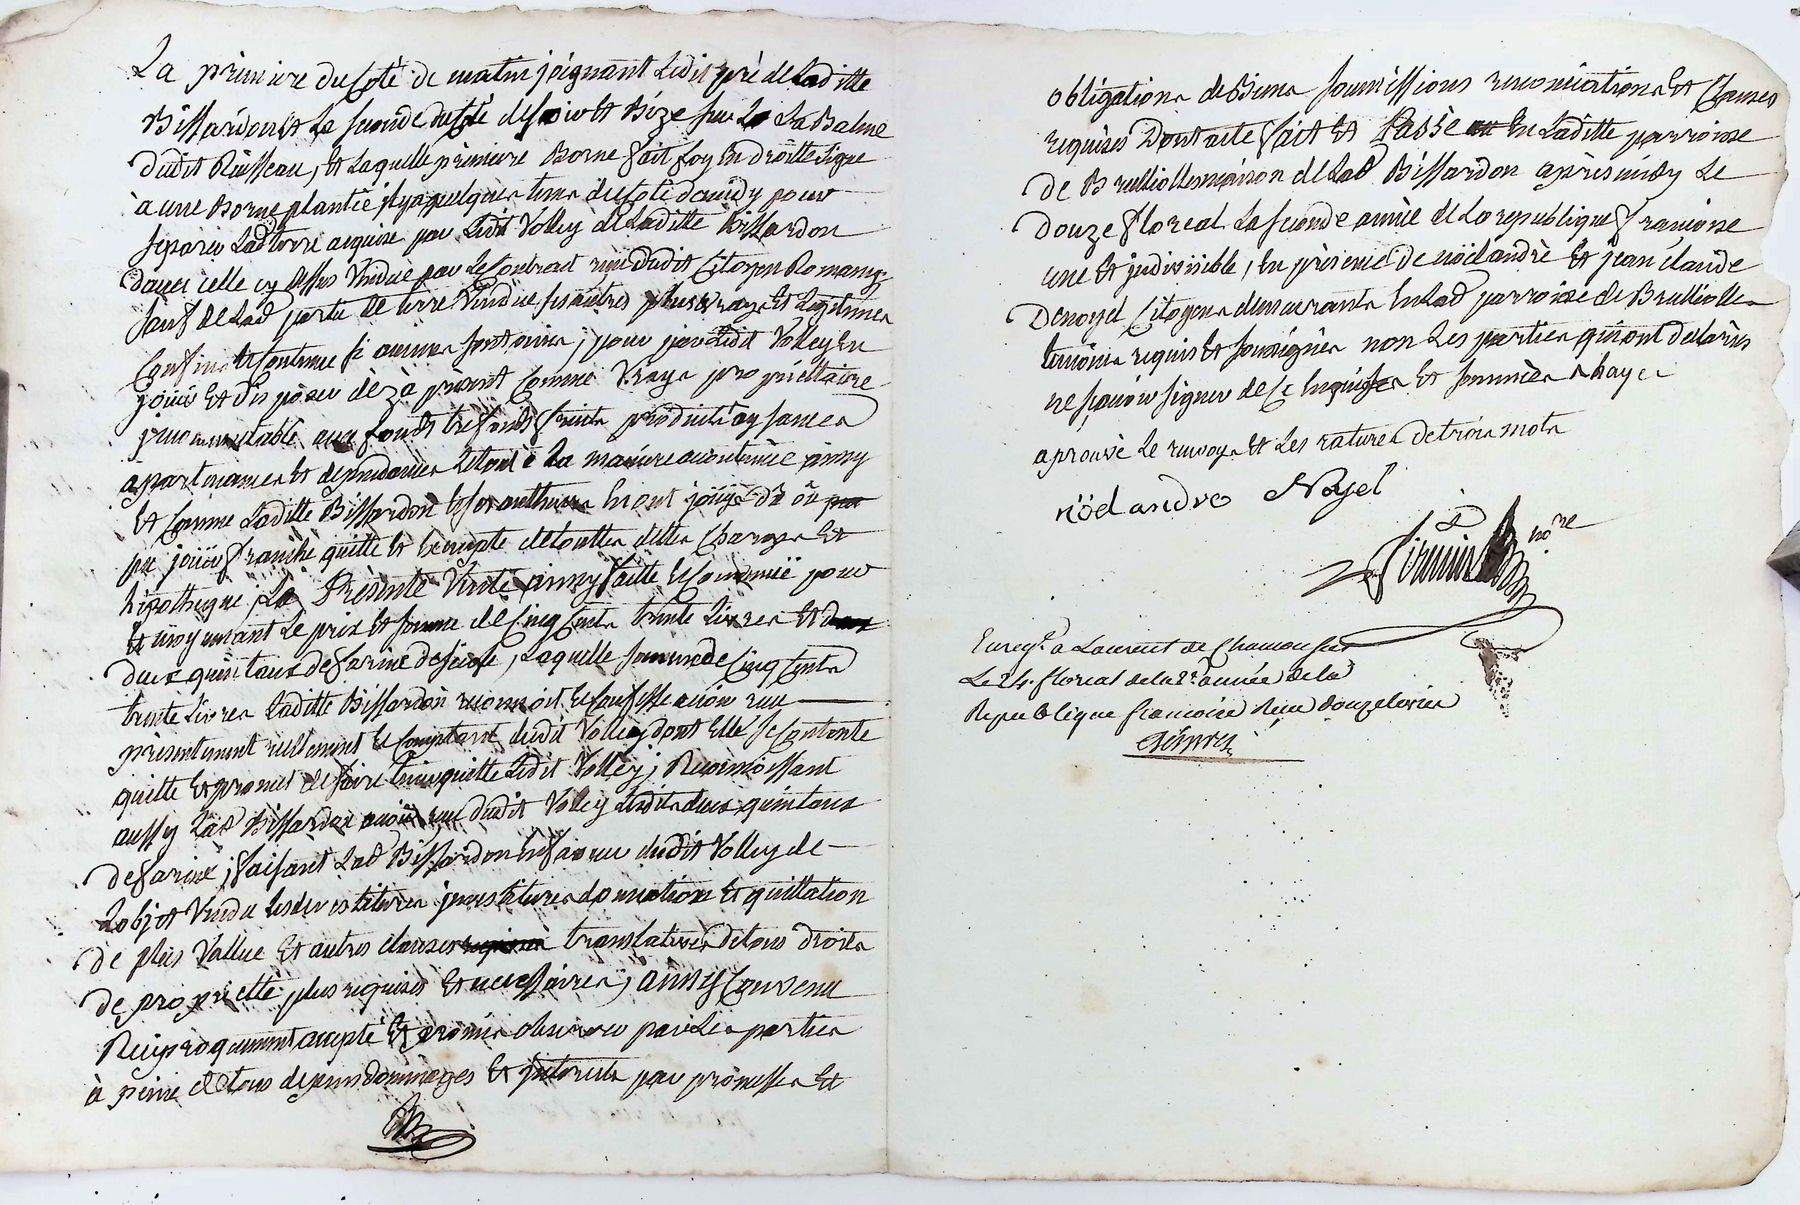 La premiere du Coté de matin joignant Ledit pré de Laditte
Bissardon Et Le seconde du Coté de soir Et Bize sur La Balme
dudit Ruisseau, Et Laquelle premiere Borne fait foy En droitte Ligne
à une Borne plantée il y a quelques tems du Coté de midy pour
separer Lad terre acquise par Ledit Volley de Laditte Bissardon
d'avec celle cy dessus Vendue par Le Contrat dudit Citoyen Romany
sauf de Lad partie de terre Vendue ses autres plus vrays Et Legitimes
Confins Et Contenue si aucuns sont omis; pour par Ledit Volley En
joüir Et disposer dèz à présent Comme Vrays propriettaire
jncommutable aux fonds trefonds fruits produits aysances
apartenances Et dependances Le tout à La maniere accoutumée ainsy
Et Comme Laditte Bissardon Et ses autheurs En ont joüy Et dû ou
pu joüir franche quitte Et Exempte de touttes dettes Charges Et
hipotheque; La Présente Vente ainsy faitte Et Convenüe pour
Et moyennant Le prix Et somme de Cinq Cents trente Livres Et
deux quintaux de farine de seigle, Laquelle somme de Cinq Cents
trente Livres Laditte Bissardon reconnoit Et Confesse avoir reçu
présentement réellement Et Comptant dudit Volley dont Elle se Contente
quitte Et promet de faire tenir quitte Ledit Volley; Reconnoissant
aussy Lad Bissardon avoir reçu dudit Volley Lesdits deux quintaux
de farine; faisant Lad Bissardon En faveur dudit Volley de
Lobjet Vendu Les devestitures jnvestitures donnation Et quittation
de plus Vallue Et autres clauses translatives de tous droits
de propriette plus requises Et necessaires; ainsy Convenu
Reciproquement accepté Et promis observer par Les parties
à peine de tous depens dommages Et jnterests par promesses Et
obligations de Biens soumissions renonciations Et Clauses
requises Dont acte fait Et Passé En Laditte parroisse
de Brulliolles maison de Lad Bissardon après midy Le
douze floreal La seconde année de La republique francoise
une Et jndivisible, En présence de noël andré Et jean claude
Denoyel Citoyens demeurants En Lad parroisse de Brulliolles
temoins requis Et soussignés non Les parties qui ont declarés
ne sçavoir signer de Ce Enquises Et sommées
aprouvé Le renvoys Et Les ratures de trois mots
nöel andre Noyel
no.re
Enreg.t a Laurent de Chamousset
Le 24. floreal de la 2e. année de la
Republique francoise Recu douze livres